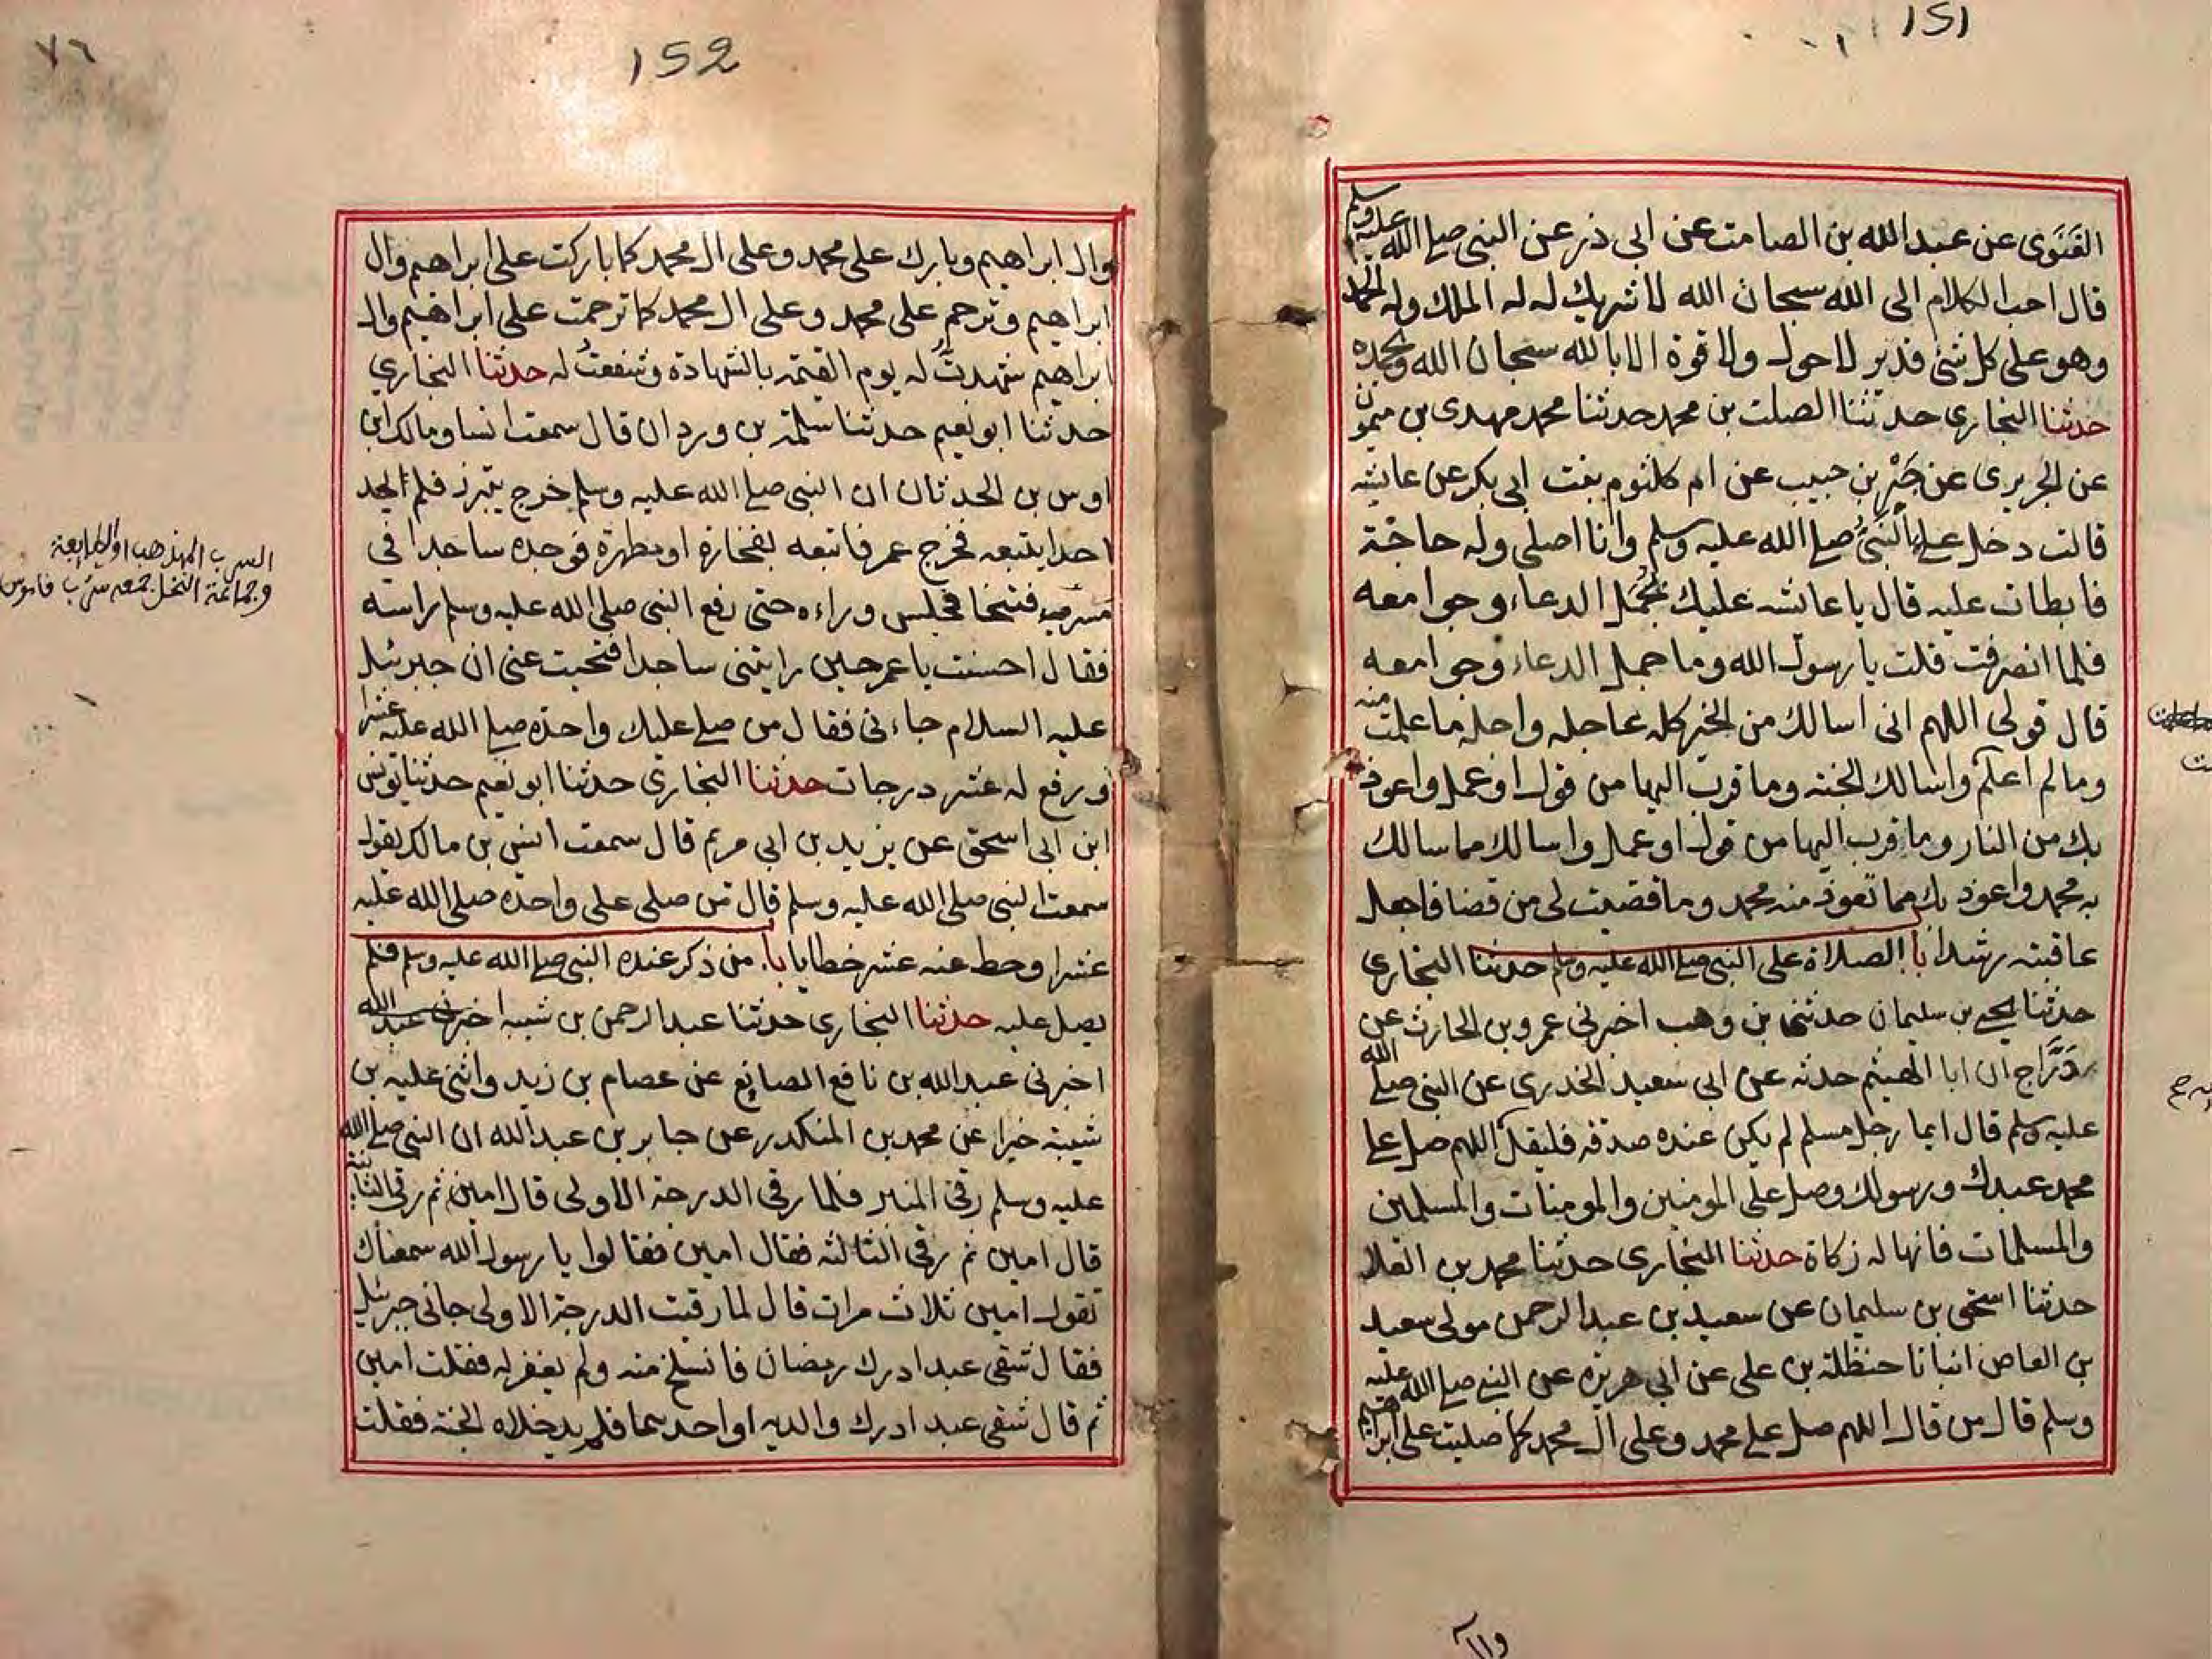 151
الغَنَوى عن عبد الله بن الصامت عن ابى ذر عن النبى صلے الله عليه وسلم
قال احب الكلام الى الله سبحان الله لا شريك له له الملك وله الحمد
وهو على كل شئ قدير لا حول ولا قوة الا بالله سبحان الله وبحمده
حدثنا البخارى حدثنا الصلت بن محمد حدثنا محمد مهدى بن ميمون
عن الجريرى عن جَبْر بن حبيب عن ام كلثوم بنت ابى بكر عن عايشه
قالت دخل على النبىُّ صلے الله عليه وسلم وانا اصلى وله حاجة
فابطات عليه قال يا عائشه عليك بجُمَل الدعاء وجوامعه
فلما انصرفت قلت يا رسول الله وما جمل الدعاء وجوامعه
قال قولى اللهم انى اسالك من الخير كله عاجله واجله ما علمت منه
وما لم اعلم واسالك الجنة وما قرب اليها من قول او عمل واعوذ
بك من النار وما قرب اليها من قول او عمل واسالك مما سالك
به محمد واعوذ بك مما تعوذ منه محمد وما قضيت لى من قضا فاجعل
عاقبته رشدا باب الصلاة على النبى صلے الله عليه وسلم حدثنا البخارى
حدثنا يحيے بن سليمان حدثنا بن وهب اخبرنى عمرو بن الحارث عن
دَرَّاج ان ابا الهيثم حدثه عن ابى سعيد الخدرى عن النبى صلے الله
عليه وسلم قال ايما رجل مسلم لم يكن عنده صدقه فليقل اللهم صل على
محمد عبدك ورسولك وصل على المومنين والمومنات والمسلمين
والمسلمات فانها له زكاة حدثنا البخارى حدثنا محمد بن العلا
حدثنا اسحق بن سليمان عن سعيد بن عبد الرحمن مولى سعيد
بن العاص انبانا حنظلة بن على عن ابى هريره عن النبى صلے الله عليه
وسلم قال من قال اللهم صل على محمد وعلى ال محمد كما صليت على ابراهيم
وال
152
٧٦
وال ابراهيم وبارك على محمد وعلى ال محمد كما باركت على ابراهيم وال
ابراهيم وترحم على محمد وعلى ال محمد كما ترحمت على ابراهيم وال
ابراهيم شهدتُ له يوم القيمة بالشهادة وشفعتُ له حدثنا البخاري
حدثنا ابو نعيم حدثنا سلمة بن وردان قال سمعت انسا ومالك ابن
اوس بن الحدثان ان النبى صلے الله عليه وسلم خرج يتبرز فلم يجد
احدا يتبعه فخرج عمر فاتبعه بفخارة او مطهرة فوجده ساجدا في
مسرب فتنحا فجلس وراءه حتى رفع النبى صلى الله عليه وسلم راسه
فقال احسنت يا عمر حين رايتنى ساجدا فتنحيت عنى ان جبرئيل
عليه السلام جاءنى فقال من صلے عليك واحدة صلے الله عليه عشرا
ورفع له عشر درجات حدثنا البخارى حدثنا ابو نعيم حدثنا يونس
ابن ابى اسحق عن يزيد بن ابى مريم قال سمعت انس بن مالك يقول
سمعت النبى صلى الله عليه وسلم قال من صلى على واحدة صلى الله عليه
عشرا وحط عنه عشر خطايا باب من ذكر عنده النبى صلے الله عليه وسلم فلم
يصل عليه حدثنا البخارى حدثنا عبد الرحمن بن شيبه اخبرنى عبد الله
اخبرنى عبد الله بن نافع الصائغ عن عصام بن زيد واثنى عليه بن
شيبة خيرا عن محمد بن المنكدر عن جابر بن عبد الله ان النبى صلے الله
عليه وسلم رقى المنبر فلما رقى الدرجة الاولى قال امين ثم رقى الثانية
قال امين ثم رقى الثالثه فقال امين فقالوا يا رسول الله سمعناك
تقول امين ثلاث مرات قال لما رقيت الدرجة الاولى جانى جبرئيل
فقال شقى عبد ادرك رمضان فانسلخ منه ولم يغفر له فقلت امين
ثم قال شقى عبد ادرك والديه او احدهما فلم يدخلاه الجنة فقلت
السرب المذهب او الطريقة
وجماعة النخل جمعه سرب قاموس